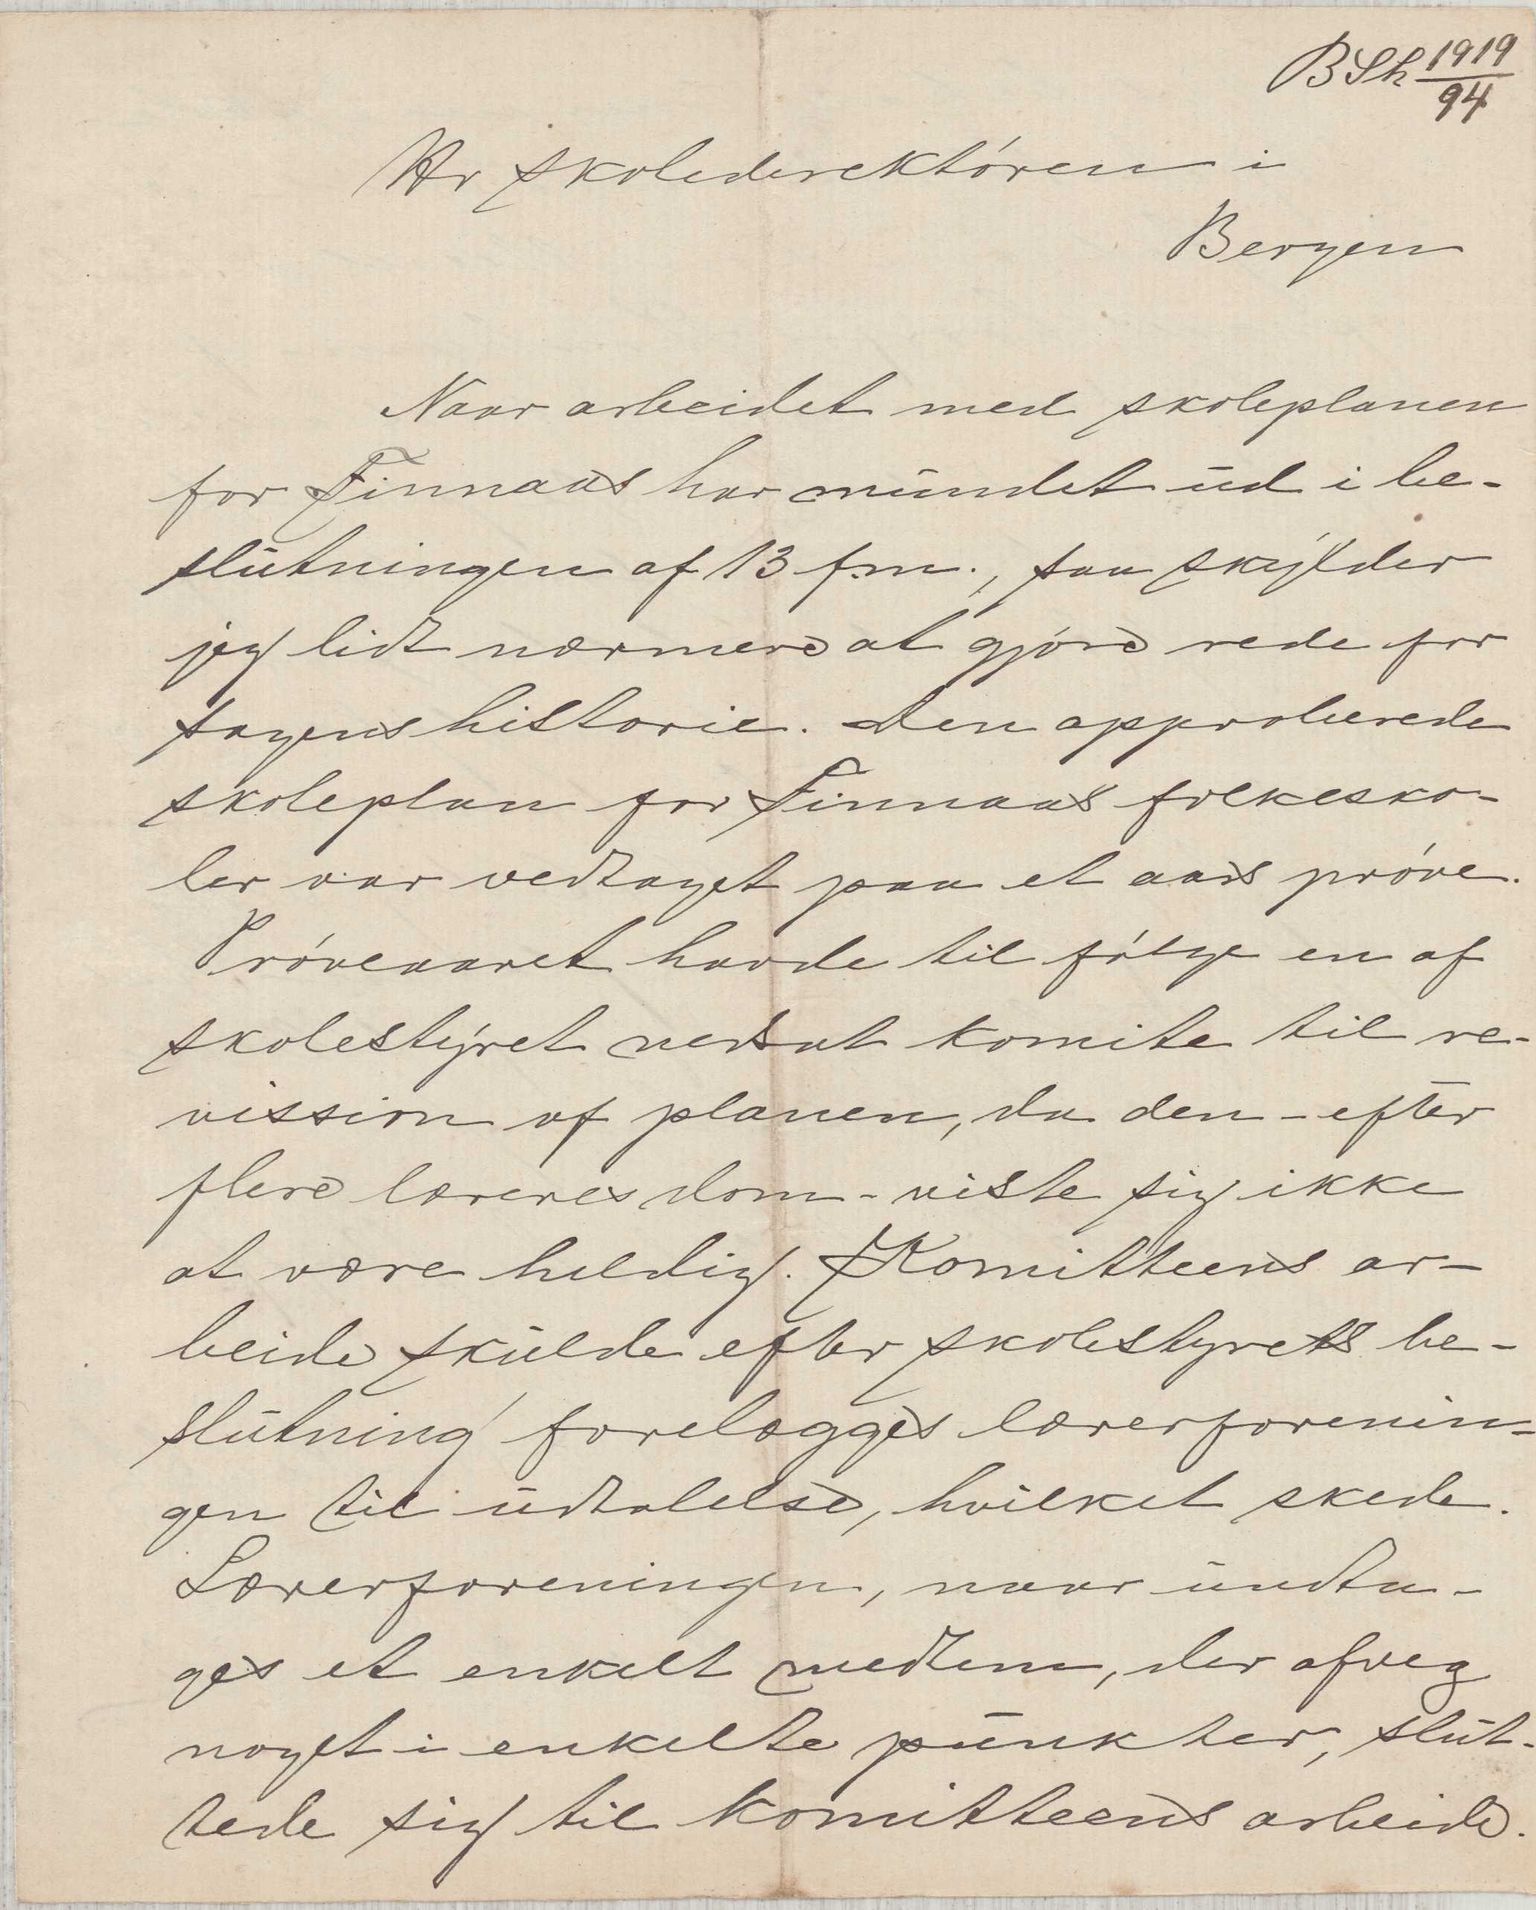 BSk 1919/94
Hr skoledirektøren i
Bergen
Naar arbeidet med skoleplanen
for Finnaas har mundet ud i be-
slutningen af 13 f.m., saa skylder
jeg lidt nærmere at gjøre rede for
sagens historie. Den approberede
skoleplan for Finnaas folkesko-
ler var vedtaget paa et aars prøve.
Prøveaaret havde til følge en af
skolestyret nedsat komite til re-
vission af planen, da den - efter
flere læreres dom - viste sig ikke
at være heldig. Komitteens ar-
beide skulde efter skolestyrets be-
slutning forelægges lærerforenin-
gen til udtalelse, hvilket skede.
Lærerforeningen, naar undta-
ges et enkelt medlem, der afveg
noget i enkelte punkter, slut-
tede sig til komitteens arbeide.